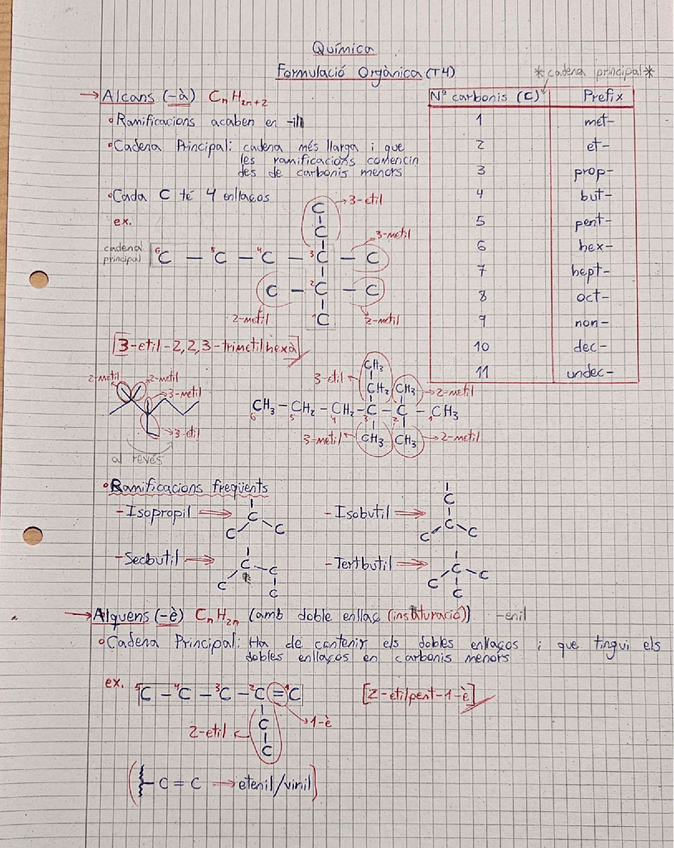 Química
Formulació Orgànica (T4)
*cadena principal*
→ Alcans (-à) CnH2n+2
• Ramificacions acaben en -il
• Cadena Principal: cadena més llarga i que
les ramificacions comencin
des de carbonis menors
• Cada C té 4 enllaços
ex.
Nº carbonis (C) Prefix
1 met-
2 et-
3 prop-
4 but-
5 pent-
6 hex-
7 hept-
8 oct-
9 non-
10 dec-
11 undec-
C → 3-etil
C 3-metil
cadena principal 6C – 5C – 4C – 3C – C
C – 2C – C
2-metil 1C 2-metil
[3-etil-2,2,3-trimetilhexà]
2-metil 2-metil
3-metil
3-etil
al revés
CH3
3-etil CH2 CH3 → 2-metil
CH3 – CH2 – CH2 – C – C – CH3
6 5 4 3 2 1
3-metil CH3 CH3 → 2-metil
• Ramificacions freqüents
- Isopropil ⇒ C C C
- Isobutil ⇒ C C C C
- Secbutil ⇒ C C C C
- Tertbutil ⇒ C C C C
→ Alquens (-è) CnH2n (amb doble enllaç (insaturació)) -enil
• Cadena Principal: Ha de contenir els dobles enllaços i que tingui els
dobles enllaços en carbonis menors
ex. 5C – 4C – 3C – 2C = 1C [2-etilpent-1-è]
C → 1-è
2-etil C
(C = C → etenil/vinil)